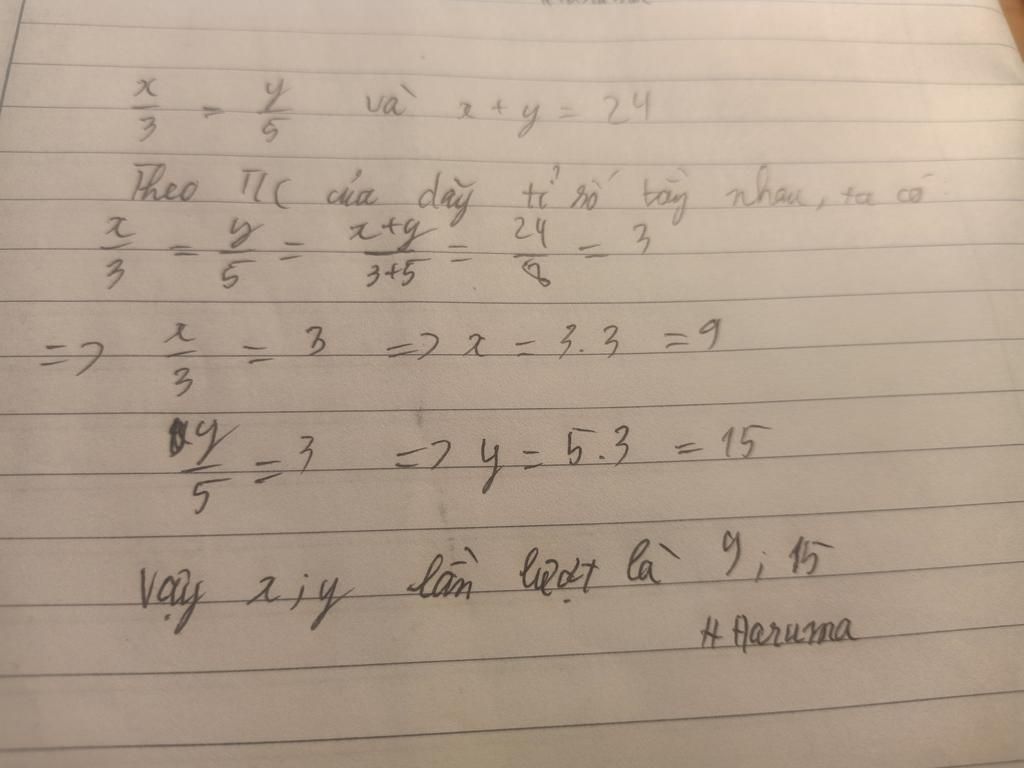 x/3 = y/5 và x + y = 24
Theo TC của dãy tỉ số bằng nhau, ta có:
x/3 = y/5 = x+y/3+5 = 24/8 = 3
=> x/3 = 3 => x = 3.3 = 9
y/5 = 3 => y = 5.3 = 15
Vậy x ; y lần lượt là 9 ; 15
# Haruma